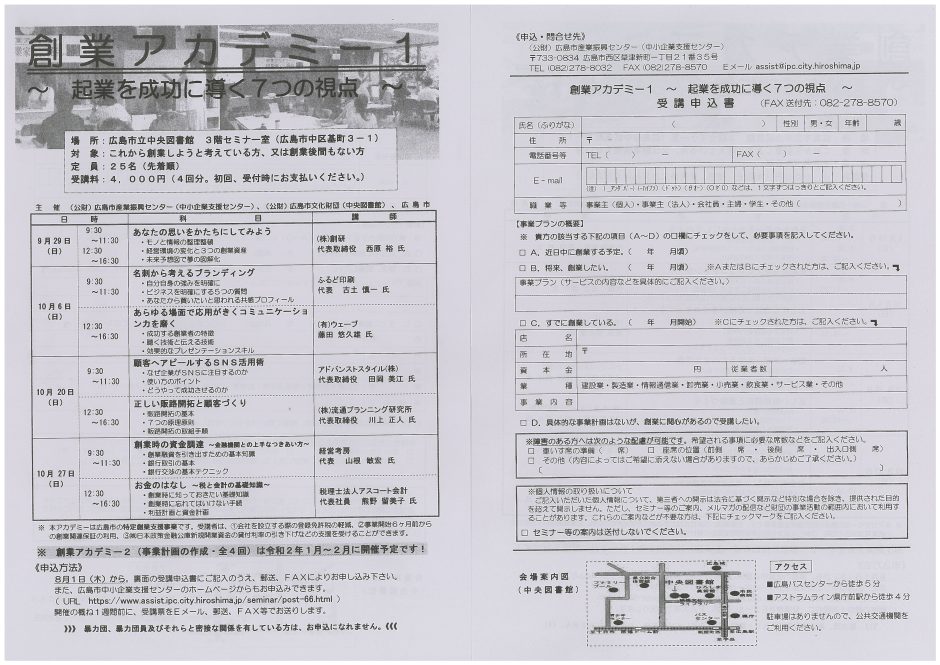 創業アカデミー１
～ 起業を成功に導く７つの視点 ～
場 所：広島市立中央図書館 ３階セミナー室（広島市中区基町３－１）
対 象：これから創業しようと考えている方、又は創業後間もない方
定 員：２５名（先着順）
受講料：４，０００円（４回分。初回、受付時にお支払いください。）
主 催 （公財）広島市産業振興センター（中小企業支援センター）、（公財）広島市文化財団（中央図書館）、広 島 市
日 時 科 目 講 師
9月29日（日）
9:30～11:30
12:30～16:30
あなたの思いをかたちにしてみよう
・モノと情報の整理整頓
・経営環境の変化と３つの創業資産
・未来予想図で夢の図解化
(株)創研
代表取締役 西原 裕 氏
10月6日（日）
9:30～11:30
名刺から考えるブランディング
・自分自身の強みを明確に
・ビジネスを明確にする５つの質問
・あなたから買いたいと思われる共感プロフィール
ふるど印刷
代表 古土 慎一 氏
12:30～16:30
あらゆる場面で応用がきくコミュニケーション力を磨く
・成功する創業者の特徴
・聴く技術と伝える技術
・効果的なプレゼンテーションスキル
(有)ウェーブ
藤田 悠久雄 氏
10月20日（日）
9:30～11:30
顧客へアピールするＳＮＳ活用術
・なぜ企業がＳＮＳに注目するのか
・使い方のポイント
・どうやって成功させるのか
アドバンストスタイル(株)
代表取締役 田岡 美江 氏
12:30～16:30
正しい販路開拓と顧客づくり
・販路開拓の基本
・７つの原理原則
・販路開拓の取組手順
(株)流通プランニング研究所
代表取締役 川上 正人 氏
10月27日（日）
9:30～11:30
創業時の資金調達 ～金融機関との上手なつきあい方～
・創業融資を引き出すための基本知識
・銀行取引の基本
・銀行交渉の基本テクニック
経営考房
代表 山根 敏宏 氏
12:30～16:30
お金のはなし ～税と会計の基礎知識～
・創業時に知っておきたい基礎知識
・創業時に忘れてはいけない手続
・利益計画と資金計画
税理士法人アスコート会計
代表社員 熊野 留美子 氏
※ 本アカデミーは広島市の特定創業支援事業です。受講者は、①会社を設立する際の登録免許税の軽減、②事業開始６ヶ月前から
の創業関連保証の利用、③㈱日本政策金融公庫新規開業資金の貸付利率の引き下げなどの支援を受けることができます。
※ 創業アカデミー２（事業計画の作成・全４回）は令和２年１月～２月に開催予定です！
《申込方法》
８月１日（木）から、裏面の受講申込書にご記入のうえ、郵送、ＦＡＸによりお申し込み下さい。
また、広島市中小企業支援センターのホームページからもお申込みできます。
（ URL https://www.assist.ipc.city.hiroshima.jp/seminar/post-66.html ）
開催の概ね１週間前に、受講票をＥメール、郵送、ＦＡＸ等でお送りします。
》》》 暴力団、暴力団員及びそれらと密接な関係を有している方は、お申込になれません。《《《
《申込・問合せ先》
（公財）広島市産業振興センター（中小企業支援センター）
〒733-0834 広島市西区草津新町一丁目２１番３５号
TEL (082)278-8032 FAX (082)278-8570 Ｅメール assist@ipc.city.hiroshima.jp
創業アカデミー１ ～ 起業を成功に導く７つの視点 ～
受 講 申 込 書 （FAX 送付先：082-278-8570）
氏名（ふりがな） （ ） 性別 男・女 年齢 歳
住 所 〒
電話番号等 TEL（ ） － FAX（ ） －
E－mail
職 業 等 事業主（個人）・事業主（法人）・会社員・主婦・学生・その他（ ）
【事業プランの概要】
※ 貴方の該当する下記の項目（Ａ～Ｄ）の口欄にチェックをして、必要事項を記入してください。
□ Ａ、近日中に創業する予定。（ 年 月頃）
□ Ｂ、将来、創業したい。（ 年 月頃） ※ＡまたはＢにチェックされた方は、ご記入ください。
事業プラン（サービスの内容などを具体的にご記入ください。）
□ Ｃ，すでに創業している。（ 年 月開始） ※Ｃにチェックされた方は、ご記入ください。
店 名
所 在 地 〒
資 本 金 円 従業者数 人
業 種 建設業・製造業・情報通信業・卸売業・小売業・飲食業・サービス業・その他
事 業 内 容
□ Ｄ．具体的な事業計画はないが、創業に関心があるので受講したい。
※障害のある方へは次のような配慮が可能です。希望される事項に必要な席数などをご記入ください。
□ 車いす席の準備（ 席） □ 座席の位置（前側 席 ・ 後側 席 ・ 出入口側 席）
□ その他（内容によってはご希望に添えない場合がありますので、あらかじめご了承ください。）
（ ）
※個人情報の取り扱いについて
ご記入いただいた個人情報について、第三者への開示は法令に基づく開示など特別な場合を除き、提供された目的
を超えて開示しません。ただし、セミナー等のご案内、メルマガの配信など財団の事業活動の範囲内において利用す
ることがあります。これらのご案内などが不要な方は、下記にチェックマークをご記入ください。
□ セミナー等の案内は送付しないでください。
会場案内図
（中央図書館）
中央図書館
バスセンター
アクセス
■広島バスセンターから徒歩５分
■アストラムライン県庁前駅から徒歩４分
駐車場はありませんので、公共交通機関を
ご利用ください。